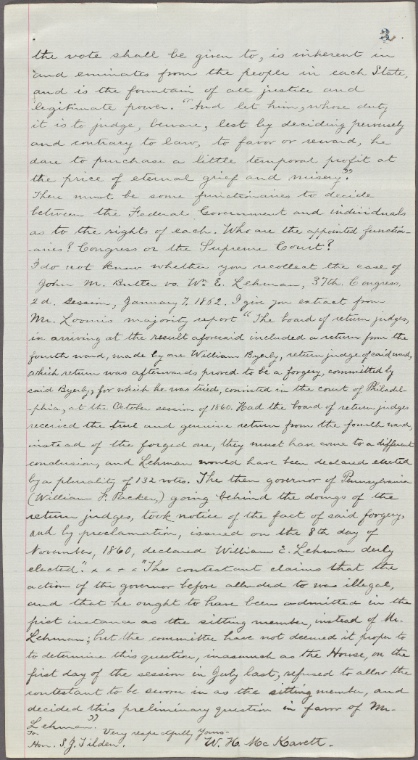 2.
the vote shall be given to, is inherent in
and eminates from the people in each State,
and is the fountain of all justice and
legitimate power. "And let him, whose duty
it is to judge, beware, lest by deciding perversely
and contrary to law, to favor or reward, he
dare to purchase a little temporal profit at
the price of eternal grief and misery."
There must be some functionaries to decide
between the Federal Government and individuals
as to the rights of each. Who are the appointed function-
aries? Congress or the Supreme Court?
I do not know whether you recollect the case of
John M. Butler vs. Wm. E. Lehman, 37th Congress,
2d. Session, January 7, 1862. I give you extract from
Mr. Loomis majority report "The board of return judges,
in arriving at the result aforesaid included a return from the
fourth ward, made by one William Byerly, return judge of said ward,
which return was afterwards proved to be a forgery, committed by
said Byerly, for which he was tried, convicted in the court of Philadel-
phia, at the October session of 1860. Had the board of return judges
received the true and genuine return from the fourth ward,
instead of the forged one, they must have come to a different
conclusion, and Lehman would have been declared elected
by a plurality of 132 votes. The then governor of Pennsylvania
(William F. Packer,) going behind the doings of the
return judges, took notice of the fact of said forgery,
and by proclamation, issued on the 8th day of
November, 1860, declared William E. Lehman duly
elected." x x x x "The contestant claims that the
action of the governor before alluded to was illegal,
and that he ought to have been admitted in the
first instance as the sitting member, instead of Mr.
Lehman; but the committee have not deemed it proper to
to determine this question, inasmuch as the House, on the
first day of the session in July last, refused to allow the
contestant to be sworn in as the sitting member, and
decided this preliminary question in favor of Mr.
Lehman."
To Very respectfully Yours
Hon. S. J. Tilden. W. H. Mc